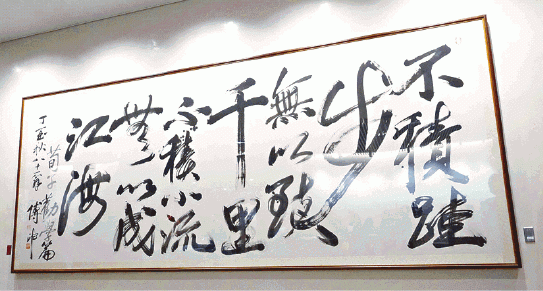 不積跬
步
無以致
千里
不積小流
無以成
江海
荀子勸學篇
丁酉秋八十一翁 傅申